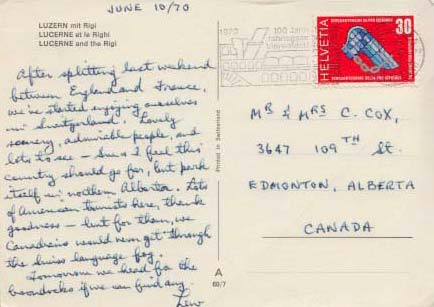 JUNE 10/70
LUZERN mit Rigi
LUCERNE et le Righi
LUCERNE and the Rigi
After splitting last weekend
between England and France,
we've started enjoying ourselves
in Switzerland. Lovely
scenery, admirable people, and
lots to see – Sue & I feel this
country should go far, but park
itself in northern Alberta. Lots
of American tourists here, thank
goodness – but for them, we
Canadians would never get through
the Swiss language fog.
Tomorrow we head for the
boondocks if we can find any
Lew
Printed in Switzerland
A
60/7
1970
100 Jahre
HELVETIA
30
MR & MRS C. COX,
3647 109TH St.
EDMONTON, ALBERTA
CANADA